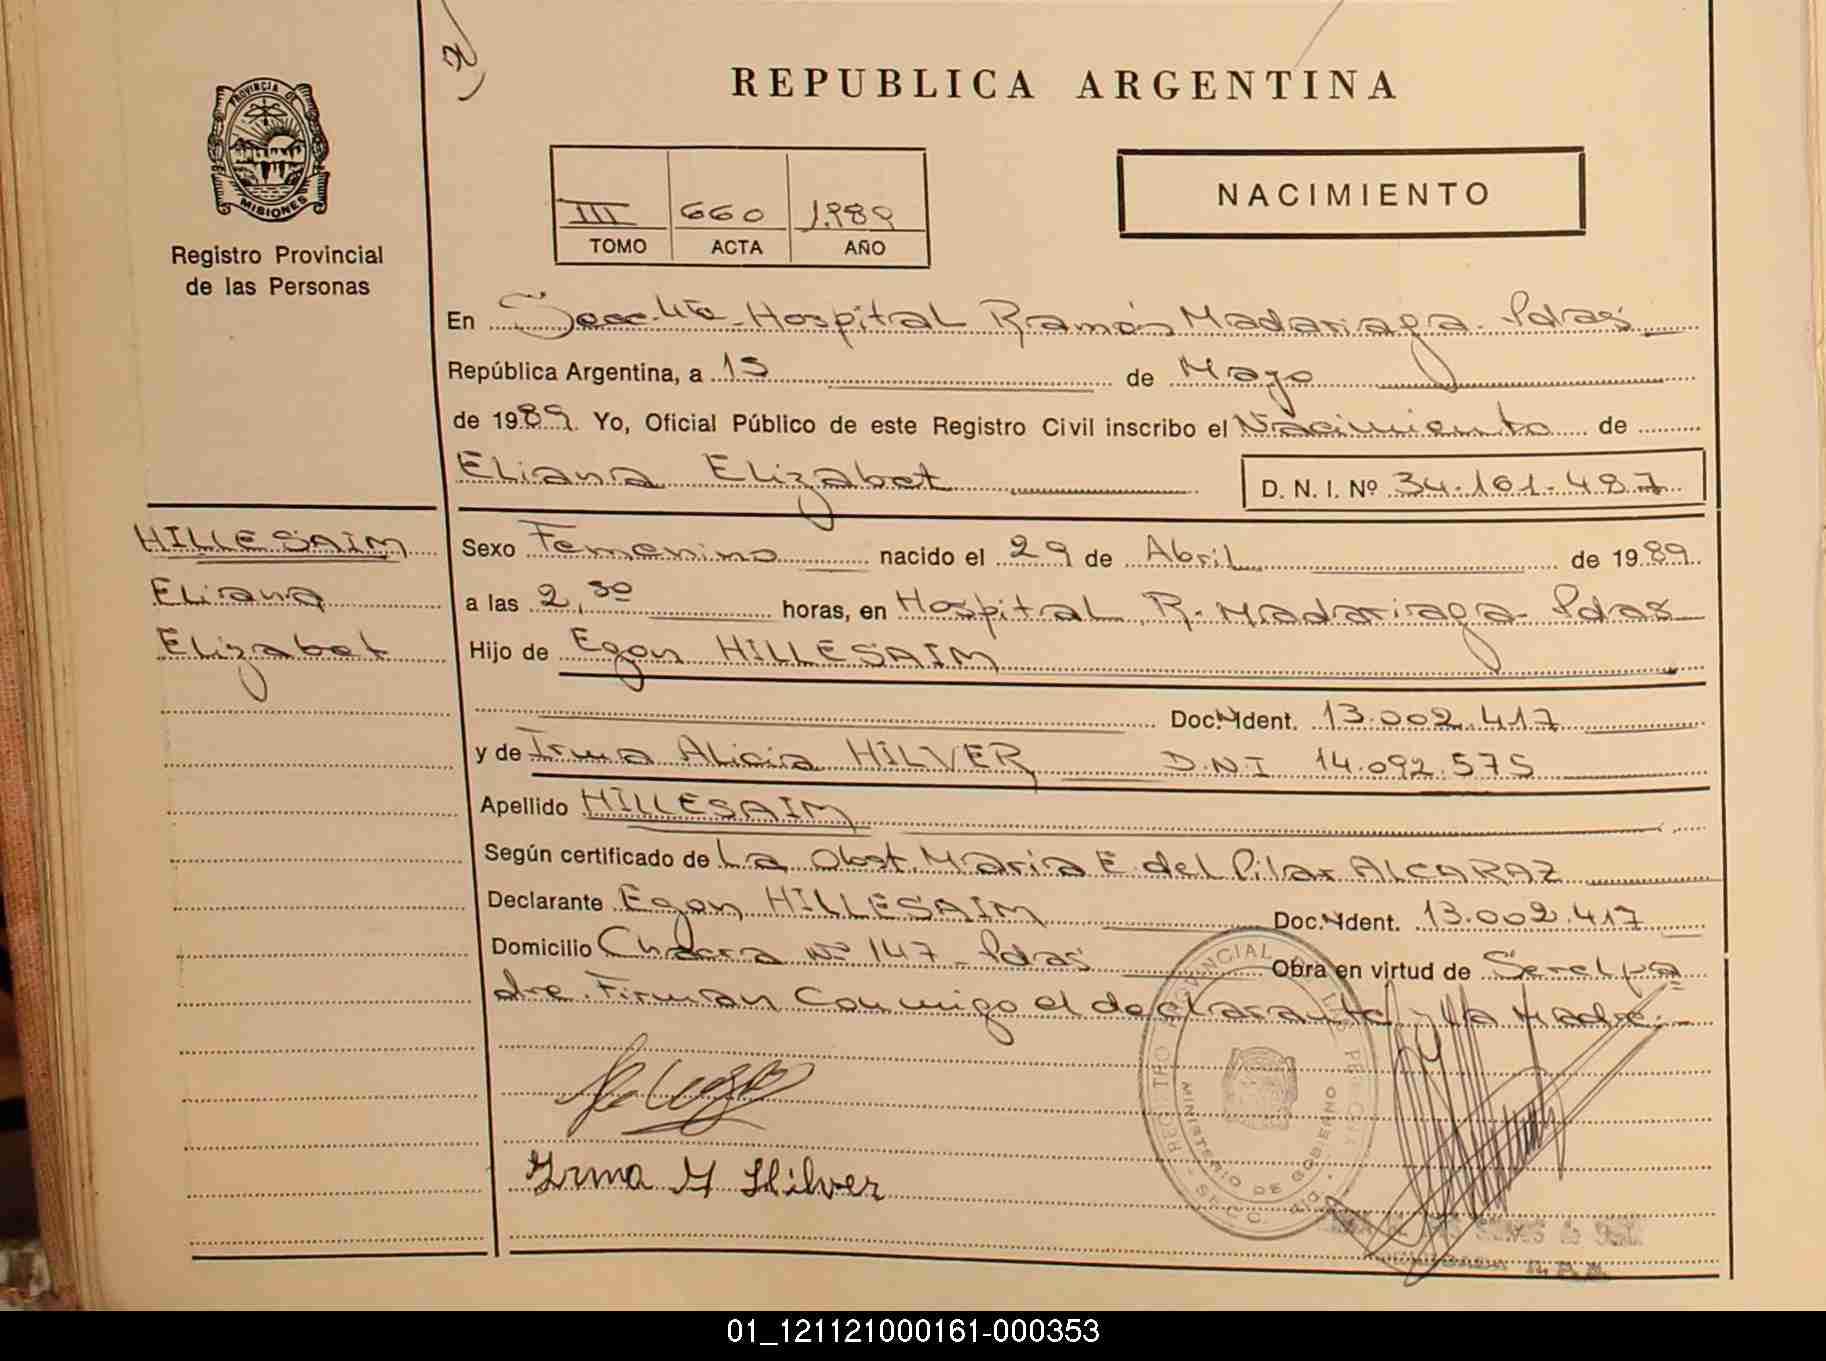 REPUBLICA ARGENTINA
PROVINCIA DE
MISIONES
Registro Provincial
de las Personas
III 660 1.989
TOMO ACTA AÑO
NACIMIENTO
En Secc. 4ta Hospital Ramón Madariaga. Pdas
República Argentina, a 15 de Mayo
de 1989. Yo, Oficial Público de este Registro Civil inscribo el Nacimiento de
Eliana Elizabet D. N. I. Nº 34.161.487
HILLESAIM
Eliana
Elizabet
Sexo Femenino nacido el 29 de Abril de 1989.
a las 2,30 horas, en Hospital R. Madariaga Pdas
Hijo de Egon HILLESAIM
Doc. Ident. 13.002.417
y de Irma Alicia HILVER D.N.I 14.092.575
Apellido HILLESAIM
Según certificado de La Obst. María E. del Pilar ALCARAZ
Declarante Egon HILLESAIM Doc. Ident. 13.002.417
Domicilio Chacra Nº 147 - Pdas Obra en virtud de Ser el pa
dre. Firman conmigo el declarante y la Madre.
REGISTRO PROVINCIAL DE LAS PERSONAS
MINISTERIO DE GOBIERNO
Irma A Hilver
01_121121000161-000353